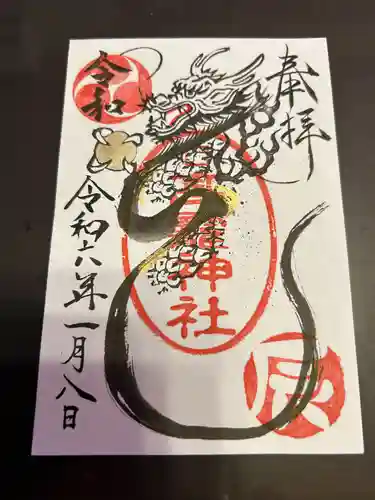 奉拝
神社
辰
令和
令和六年一月八日